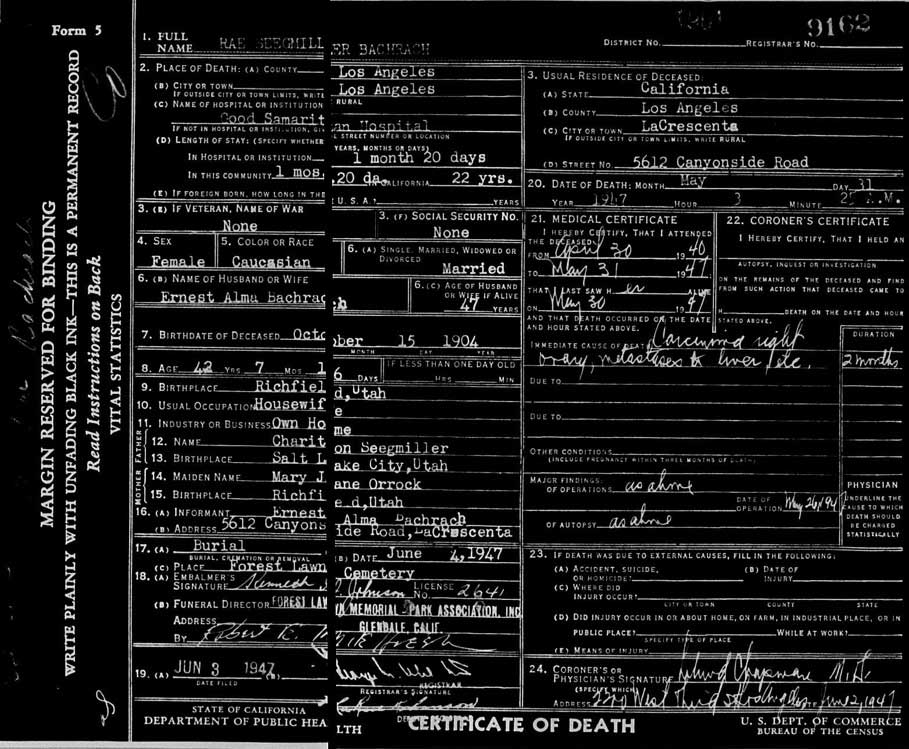 Form 5
MARGIN RESERVED FOR BINDING
WRITE PLAINLY WITH UNFADING BLACK INK—THIS IS A PERMANENT RECORD
Read Instructions on Back
VITAL STATISTICS
DISTRICT NO. 1901 REGISTRAR'S NO. 9162
1. FULL NAME RAE SEEGMILLER BACHRACH
2. PLACE OF DEATH: (A) COUNTY Los Angeles
(B) CITY OR TOWN Los Angeles
IF OUTSIDE CITY OR TOWN LIMITS, WRITE RURAL
(C) NAME OF HOSPITAL OR INSTITUTION
Good Samaritan Hospital
IF NOT IN HOSPITAL OR INSTITUTION, GIVE STREET NUMBER OR LOCATION
(D) LENGTH OF STAY: (SPECIFY WHETHER YEARS, MONTHS OR DAYS)
IN HOSPITAL OR INSTITUTION 1 month 20 days
IN THIS COMMUNITY 1 mos. 20 da. CALIFORNIA 22 yrs.
(E) IF FOREIGN BORN, HOW LONG IN THE U. S. A.? YEARS
3. (E) IF VETERAN, NAME OF WAR
None
3. (F) SOCIAL SECURITY NO.
None
4. SEX
Female
5. COLOR OR RACE
Caucasian
6. (A) SINGLE, MARRIED, WIDOWED OR DIVORCED
Married
6. (B) NAME OF HUSBAND OR WIFE
Ernest Alma Bachrach
6. (C) AGE OF HUSBAND OR WIFE IF ALIVE
47 YEARS
7. BIRTHDATE OF DECEASED October 15 1904
MONTH DAY YEAR
8. AGE 42 YRS 7 MOS 16 DAYS
IF LESS THAN ONE DAY OLD
HRS. MIN
9. BIRTHPLACE Richfield, Utah
10. USUAL OCCUPATION Housewife
11. INDUSTRY OR BUSINESS Own Home
FATHER
12. NAME Chariton Seegmiller
13. BIRTHPLACE Salt Lake City, Utah
MOTHER
14. MAIDEN NAME Mary Jane Orrock
15. BIRTHPLACE Richfield, Utah
16. (A) INFORMANT Ernest Alma Bachrach
(B) ADDRESS 5612 Canyonside Road, LaCrescenta
17. (A) Burial (B) DATE June 4, 1947
BURIAL, CREMATION OR REMOVAL
(C) PLACE Forest Lawn Cemetery
18. (A) EMBALMER'S SIGNATURE Kenneth J. Johnson LICENSE NO. 2641
(B) FUNERAL DIRECTOR FOREST LAWN MEMORIAL PARK ASSOCIATION, INC
ADDRESS GLENDALE, CALIF.
BY
19. (A) JUN 3 1947
DATE FILED
REGISTRAR
REGISTRAR'S SIGNATURE
STATE OF CALIFORNIA
DEPARTMENT OF PUBLIC HEALTH
3. USUAL RESIDENCE OF DECEASED:
(A) STATE California
(B) COUNTY Los Angeles
(C) CITY OR TOWN LaCrescenta
IF OUTSIDE CITY OR TOWN LIMITS, WRITE RURAL
(D) STREET NO. 5612 Canyonside Road
20. DATE OF DEATH: MONTH May DAY 31
YEAR 1947 HOUR 3 MINUTE 25 A.M.
21. MEDICAL CERTIFICATE
I HEREBY CERTIFY, THAT I ATTENDED THE DECEASED
FROM April 30 1940
TO May 31 1947
THAT I LAST SAW Her ALIVE
ON May 30 1947
AND THAT DEATH OCCURRED ON THE DATE AND HOUR STATED ABOVE.
22. CORONER'S CERTIFICATE
I HEREBY CERTIFY, THAT I HELD AN
AUTOPSY, INQUEST OR INVESTIGATION
ON THE REMAINS OF THE DECEASED AND FIND FROM SUCH ACTION THAT DECEASED CAME TO
H DEATH ON THE DATE AND HOUR STATED ABOVE.
DURATION
IMMEDIATE CAUSE OF DEATH Carcinoma right
ovary, metastases to liver, etc. 2 months
DUE TO
DUE TO
OTHER CONDITIONS
(INCLUDE PREGNANCY WITHIN THREE MONTHS OF DEATH)
MAJOR FINDINGS:
OF OPERATIONS as above
DATE OF OPERATION May 26, 194
OF AUTOPSY as above
PHYSICIAN
UNDERLINE THE CAUSE TO WHICH DEATH SHOULD BE CHARGED STATISTICALLY
23. IF DEATH WAS DUE TO EXTERNAL CAUSES, FILL IN THE FOLLOWING:
(A) ACCIDENT, SUICIDE, OR HOMICIDE? (B) DATE OF INJURY
(C) WHERE DID INJURY OCCUR?
CITY OR TOWN COUNTY STATE
(D) DID INJURY OCCUR IN OR ABOUT HOME, ON FARM, IN INDUSTRIAL PLACE, OR IN
PUBLIC PLACE? WHILE AT WORK?
SPECIFY TYPE OF PLACE
(E) MEANS OF INJURY
24. CORONER'S OR PHYSICIAN'S SIGNATURE Chapman M.D.
(SPECIFY WHICH)
ADDRESS West Third St Los Angeles DATE June 2, 1947
CERTIFICATE OF DEATH
U. S. DEPT. OF COMMERCE
BUREAU OF THE CENSUS